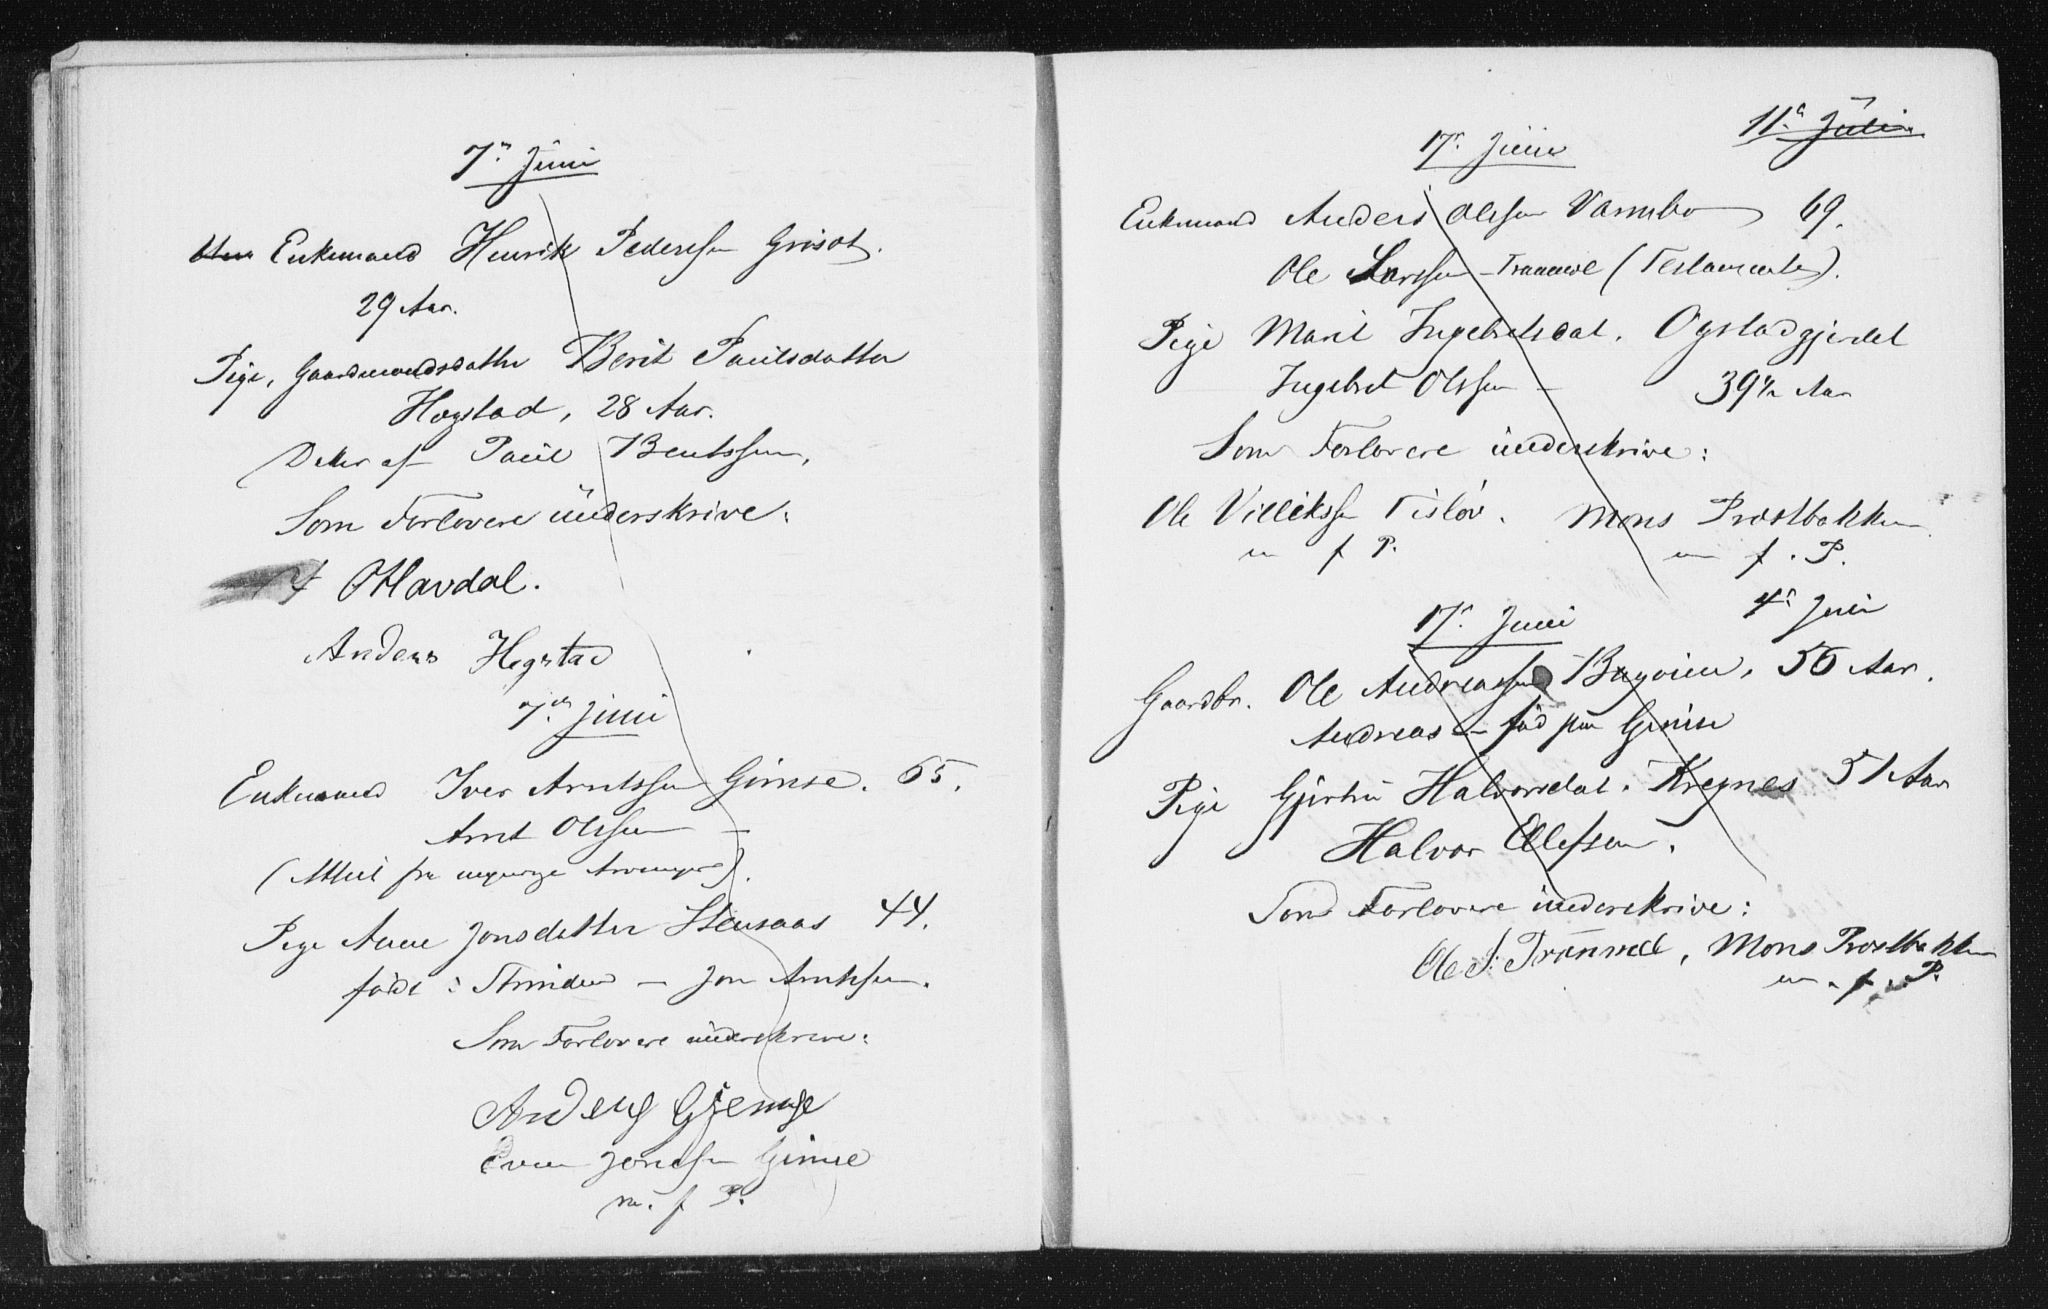 7de Juni
Enkemand Henrik Pedersen Grisot.
29 Aar.
Pige, Gaardmandsdatter Berit Paulsdatter
Hogstad, 28 Aar.
Datter af Paul Bentssen,
Som Forlovere underskrive:
O Havdal.
Anders Hegstad
7de Juni
Enkemand Iver Arntssen Gimse. 65.
Arnt Olssen —
(Attest fra myndige Arvinger).
Pige Anne Jonsdatter Stensaas 44.
født i Strinden — Jon Arntsen.
Som Forlovere underskrive:
Anders Gjemse
Even Jonessen Gimse
m. f P.
11te Juli
17de Juni
Enkemand Anders Olssen Varmbo 69.
Ole Larssen Tranmæl (Testamente).
Pige Marit Ingebretsdat. Ogstadgjerdet
Ingebret Olssen — 39½ Aar
Som Forlovere underskrive:
Ole Villikssen Tisløv. Mons Prostbakken
m f P. m f. P.
17de Juni 4de Juli
Gaardbr. Ole Andreassen Bagøien, 56 Aar.
Andreas — fød paa Gimse
Pige Gjertru Halvorsdat. Kregnes 51 Aar
Halvor Ellefsen.
Som Forlovere underskrive:
Ole S. Tranmæl, Mons Prostbakken
m. f. P.